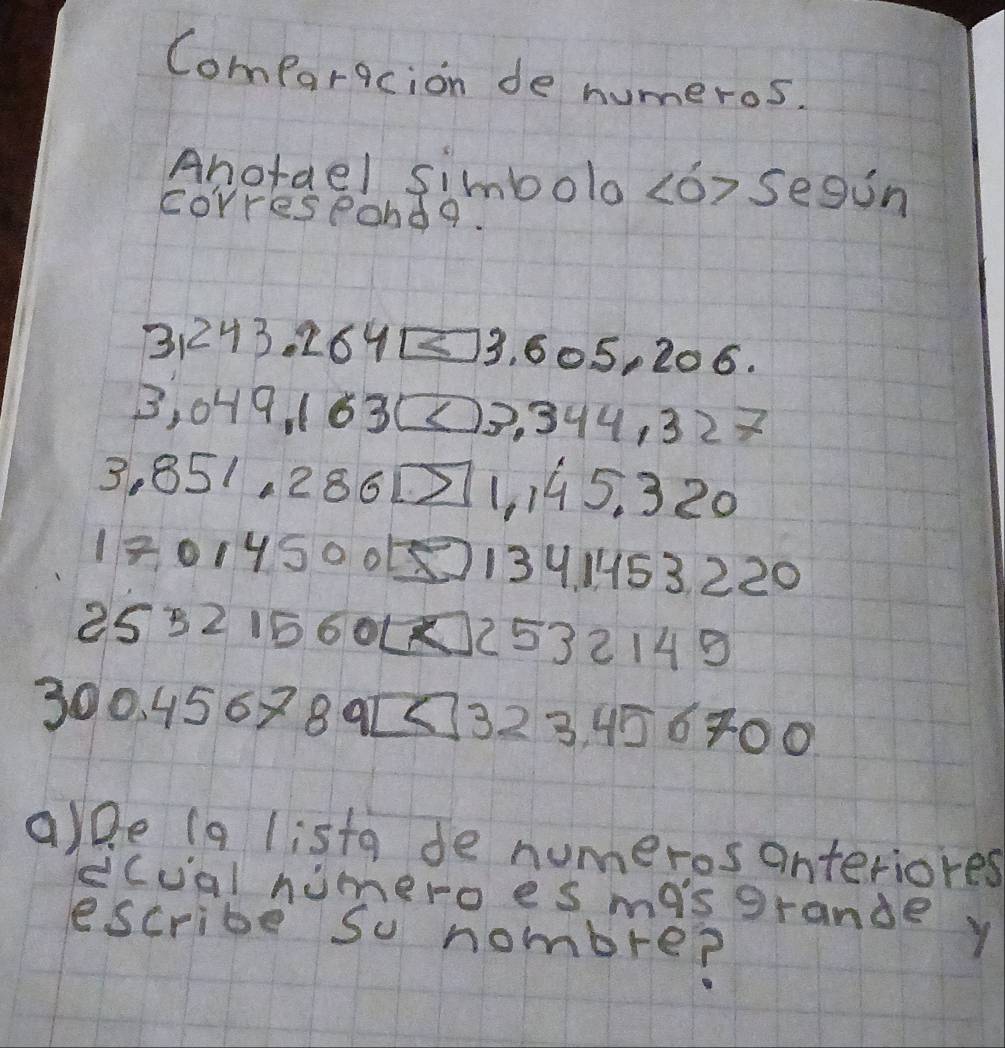 Comparación de numeros.
Anota el símbolo <ó> Según
corresponda.
3,243.264 < 3.605,206.
3,049,163 < 3,344,327
3,851,286 > 1,145,320
17014500 < 134,1453,220
25321560 < 2532149
300.456789 < 323,456700
a) De la lista de numeros anteriores
¿Cuál número es más grande y
escribe su nombre?